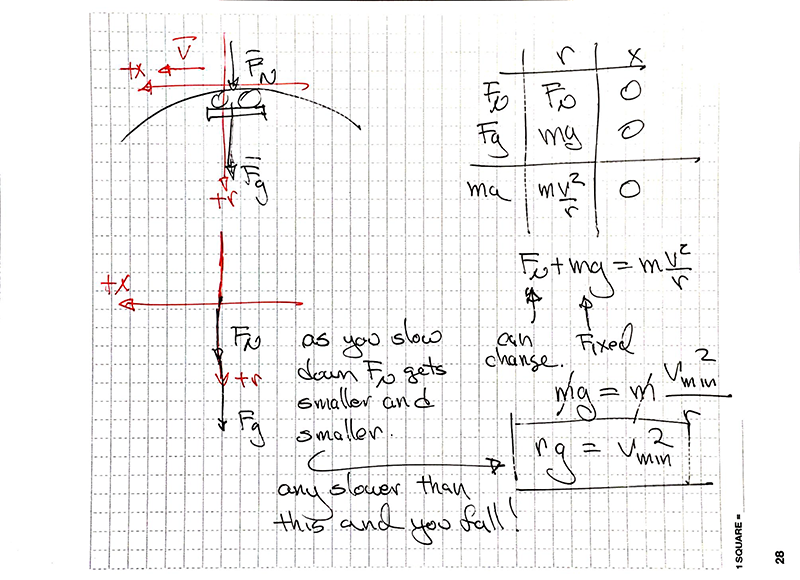 V
+x
F_N
F_g
+r
r x
F_N F_N 0
F_g mg 0
ma mv²/r 0
F_N + mg = m v²/r
can change.
Fixed
+x
F_N
+r
F_g
as you slow
down F_N gets
smaller and
smaller.
mg = m v_min²/r
rg = v_min²
any slower than
this and you fall!
1 SQUARE =
28